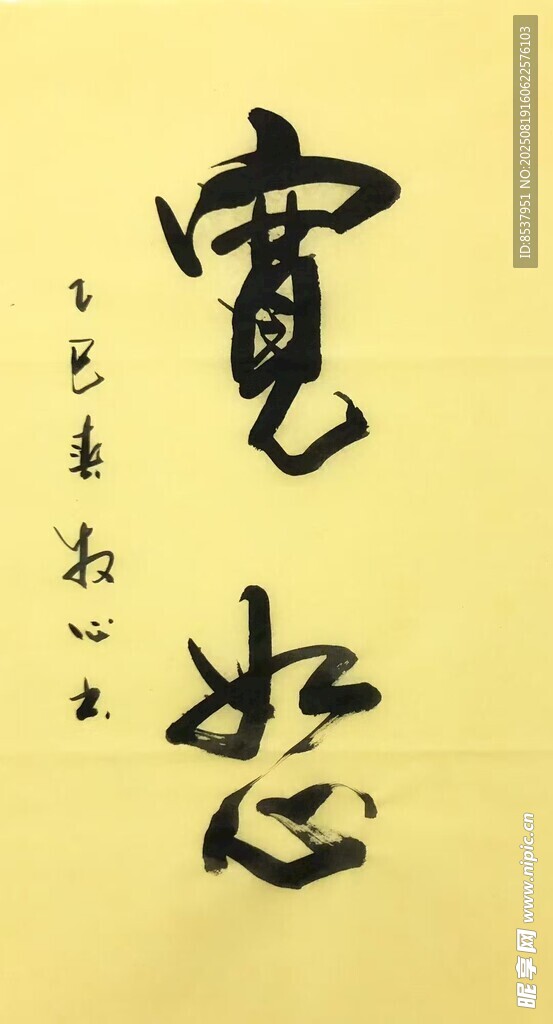 寬恕
乙巳春牧心书
ID:8537951 NO:20250819160622576103
昵享网 www.nipic.cn